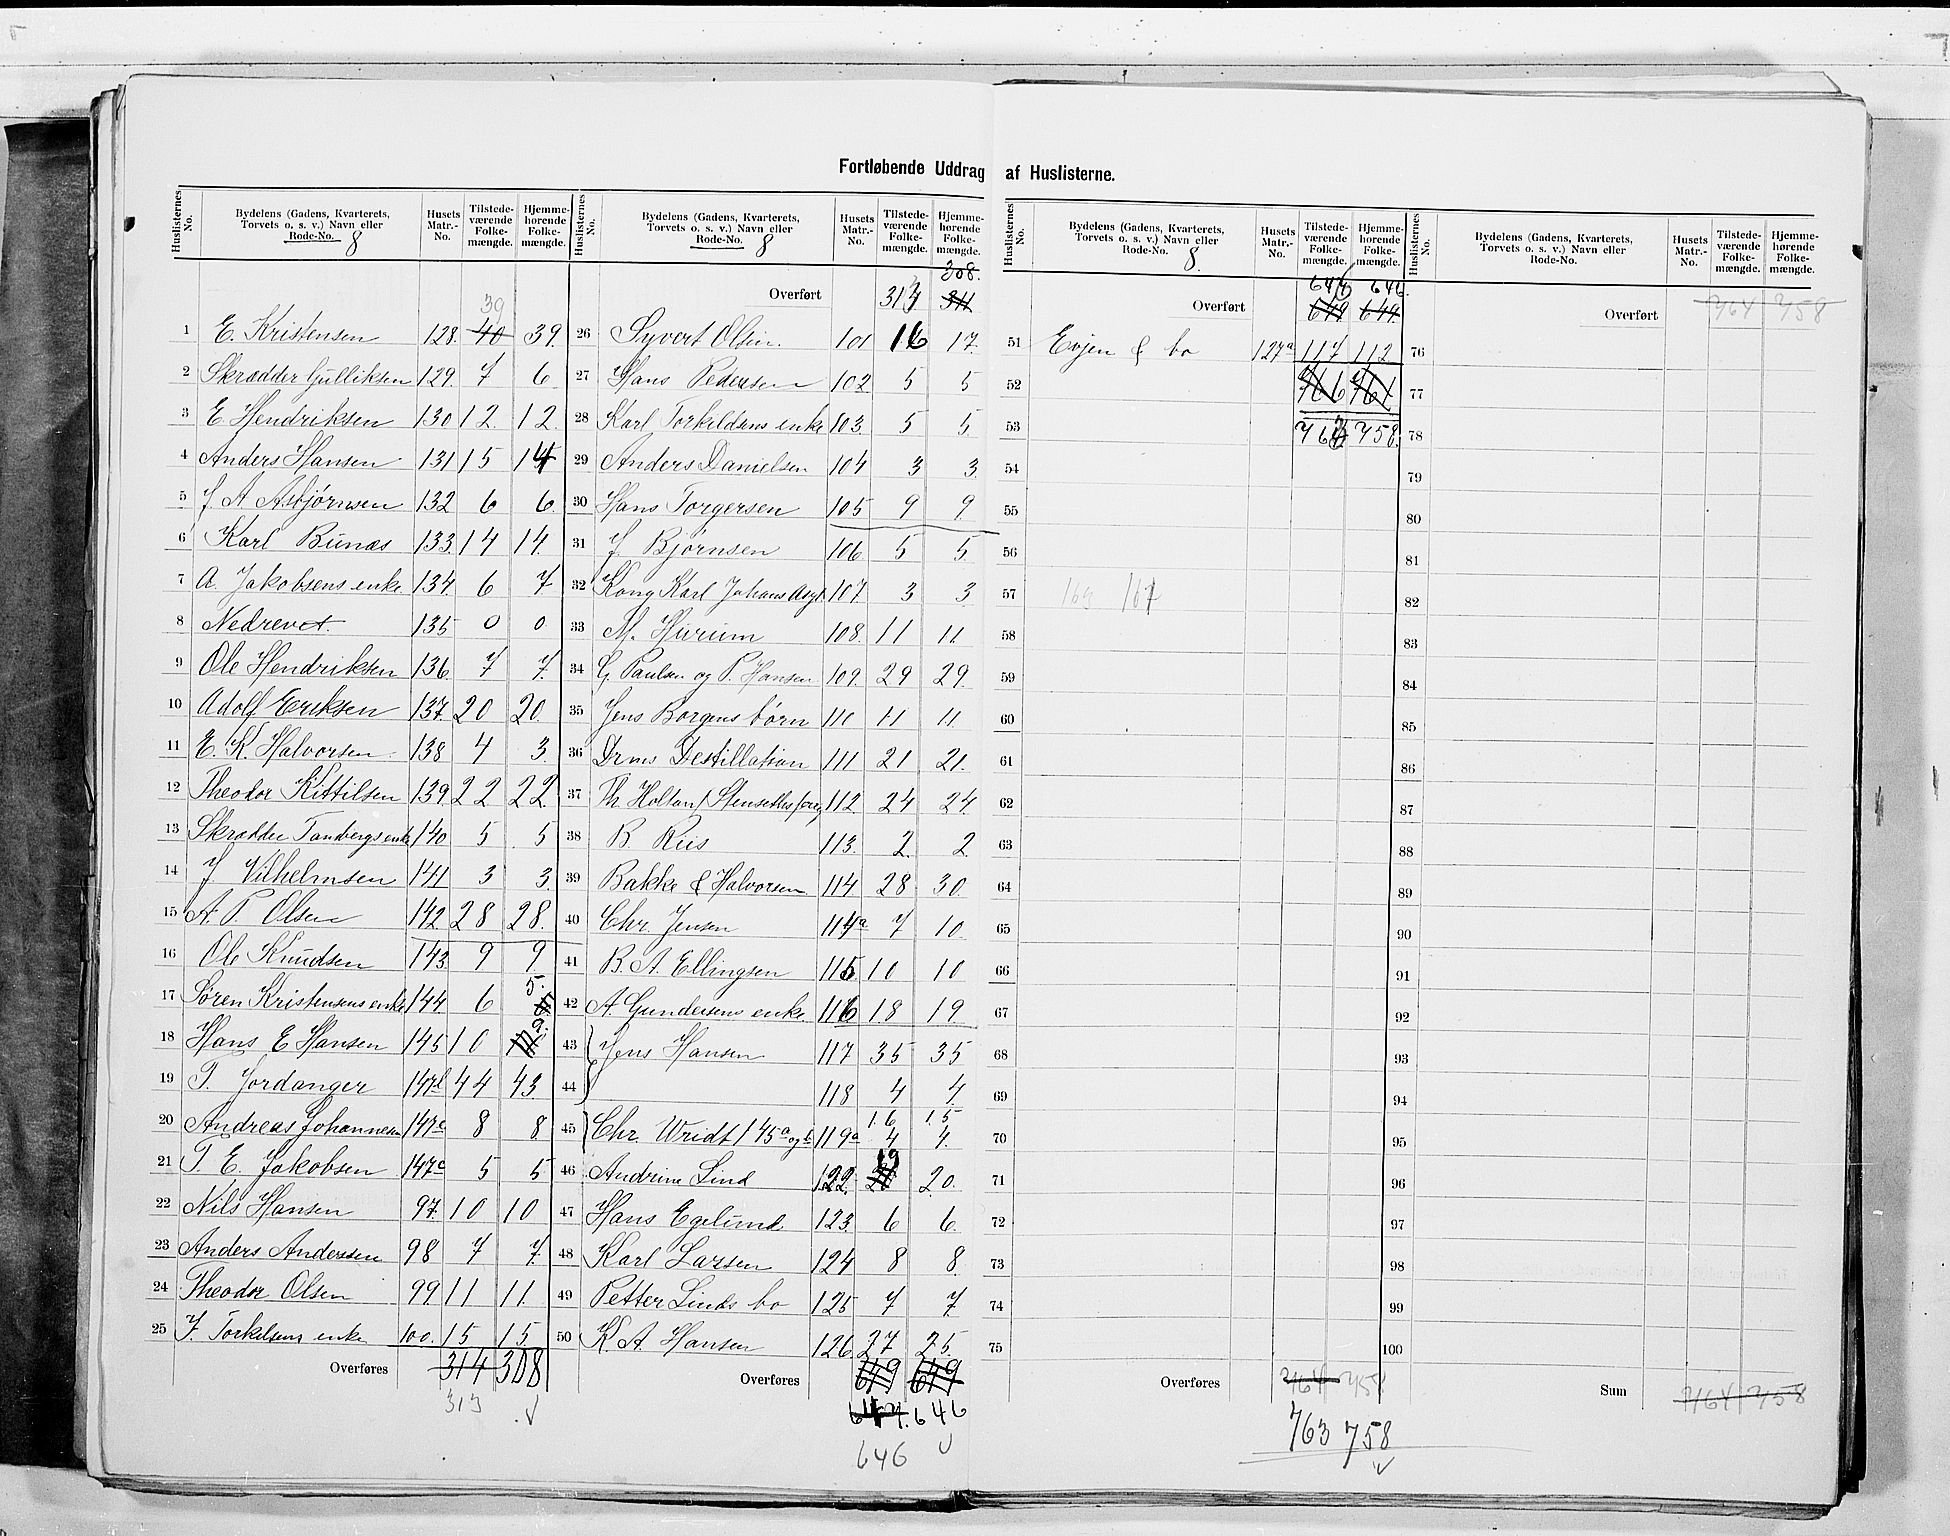 Fortløbende Uddrag af Huslisterne.
Huslisternes No. Bydelens (Gadens, Kvarterets, Torvets o. s. v.) Navn eller Rode-No. 8 Husets Matr.-No. Tilstedeværende Folkemængde. Hjemmehørende Folkemængde.
39
1 E. Kristensen 128. 40 39.
2 Skrædder Gulliksen 129. 7 6
3 E. Hendriksen 130 12. 12.
4 Anders Hansen 131 15 14
5 J. A. Asbjørnsen 132 6 6.
6 Karl Bunæs 133 14 14.
7 A. Jakobsens enke 134. 6 7
8 Nedrevet. 135 0 0.
9 Ole Hendriksen 136. 7 7.
10 Adolf Eriksen 137. 20 20.
11 E. K. Halvorsen. 138 4 3.
12 Theodor Kittilsen 139 22 22
13 Skrædder Tandbergs enke 140 5 5
14 J. Vilhelmsen 141 3 3.
15 A. P. Olsen 142 28 28.
16 Ole Knudsen 143 9 9.
17 Søren Kristensens enke 144. 6 5.
18 Hans E Hansen 145 10 9.
19 T. Jordanger 147b 44 43.
20 Andreas Johannesen 147c 8 8.
21 T. E. Jakobsen 147c 5 5
22 Nils Hansen 97. 10 10
23 Anders Anderssen 98 7 7.
24 Theodor Olsen 99. 11 11.
25 J. Torkelsens enke 100. 15 15.
Overføres 314 308
313
Huslisternes No. Bydelens (Gadens, Kvarterets, Torvets o. s. v.) Navn eller Rode-No. 8 Husets Matr.-No. Tilstedeværende Folkemængde. Hjemmehørende Folkemængde.
308.
Overført 313 311
26 Syvert Olsen. 101 16 17.
27 Hans Pedersen 102 5 5
28 Karl Torkildsens enke 103. 5 5.
29 Anders Danielsen 104 3 3.
30 Hans Torgersen 105 9 9.
31 J. Bjørnsen 106. 5 5.
32 Kong Karl Johans Asyl 107. 3 3
33 M. Hurum 108. 11 11.
34 G. Paulsen og P. Hansen 109. 29 29.
35 Jens Borgens børn 110 11 11
36 Drms Destillation 111 21 21.
37 Th Holtan / Stenseths 112. 24 24.
38 B. Riis 113. 2. 2.
39 Bakke & Halvorsen 114. 28 30.
40 Chr. Jensen 114a 7 10.
41 B. A. Ellingsen 115. 10 10
42 A. Gundersens enke. 116 18 19.
43 Jens Hansen 117 35 35
44 118 4 4
16 15
45 Chr. Wridt / 45a og b 119a 4 4.
19
46 Andrine Lind 122. 20 20.
47 Hans Egelund 123. 6 6.
48 Karl Larsen 124 8 8.
49 Petter Linds bo 125 7 7
50 K. A. Hansen 126. 27 25.
Overføres 649 649
647. 646
646
Huslisternes No. Bydelens (Gadens, Kvarterets, Torvets o. s. v.) Navn eller Rode-No. 8. Husets Matr.-No. Tilstedeværende Folkemængde. Hjemmehørende Folkemængde.
646 646.
Overført 649 649.
51 Evjen & bo 127a 117 112
52 766 761
53 763 758.
54
55
56
57 163 167
58
59
60
61
62
63
64
65
66
67
68
69
70
71
72
73
74
75
Overføres 764 758
763 758
Huslisternes No. Bydelens (Gadens, Kvarterets, Torvets o. s. v.) Navn eller Rode-No. Husets Matr.-No. Tilstedeværende Folkemængde. Hjemmehørende Folkemængde.
Overført 764 758
76
77
78
79
80
81
82
83
84
85
86
87
88
89
90
91
92
93
94
95
96
97
98
99
100
Sum 764 758